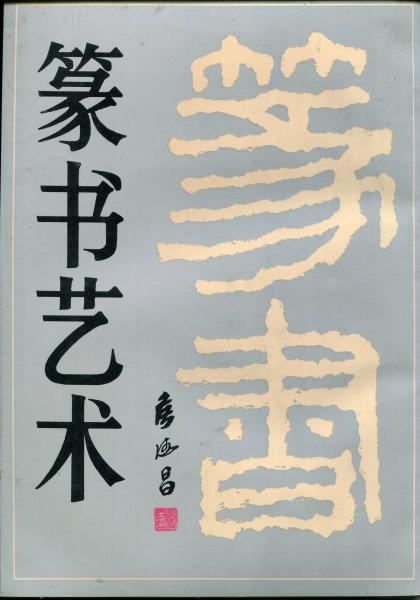 篆书艺术
篆書